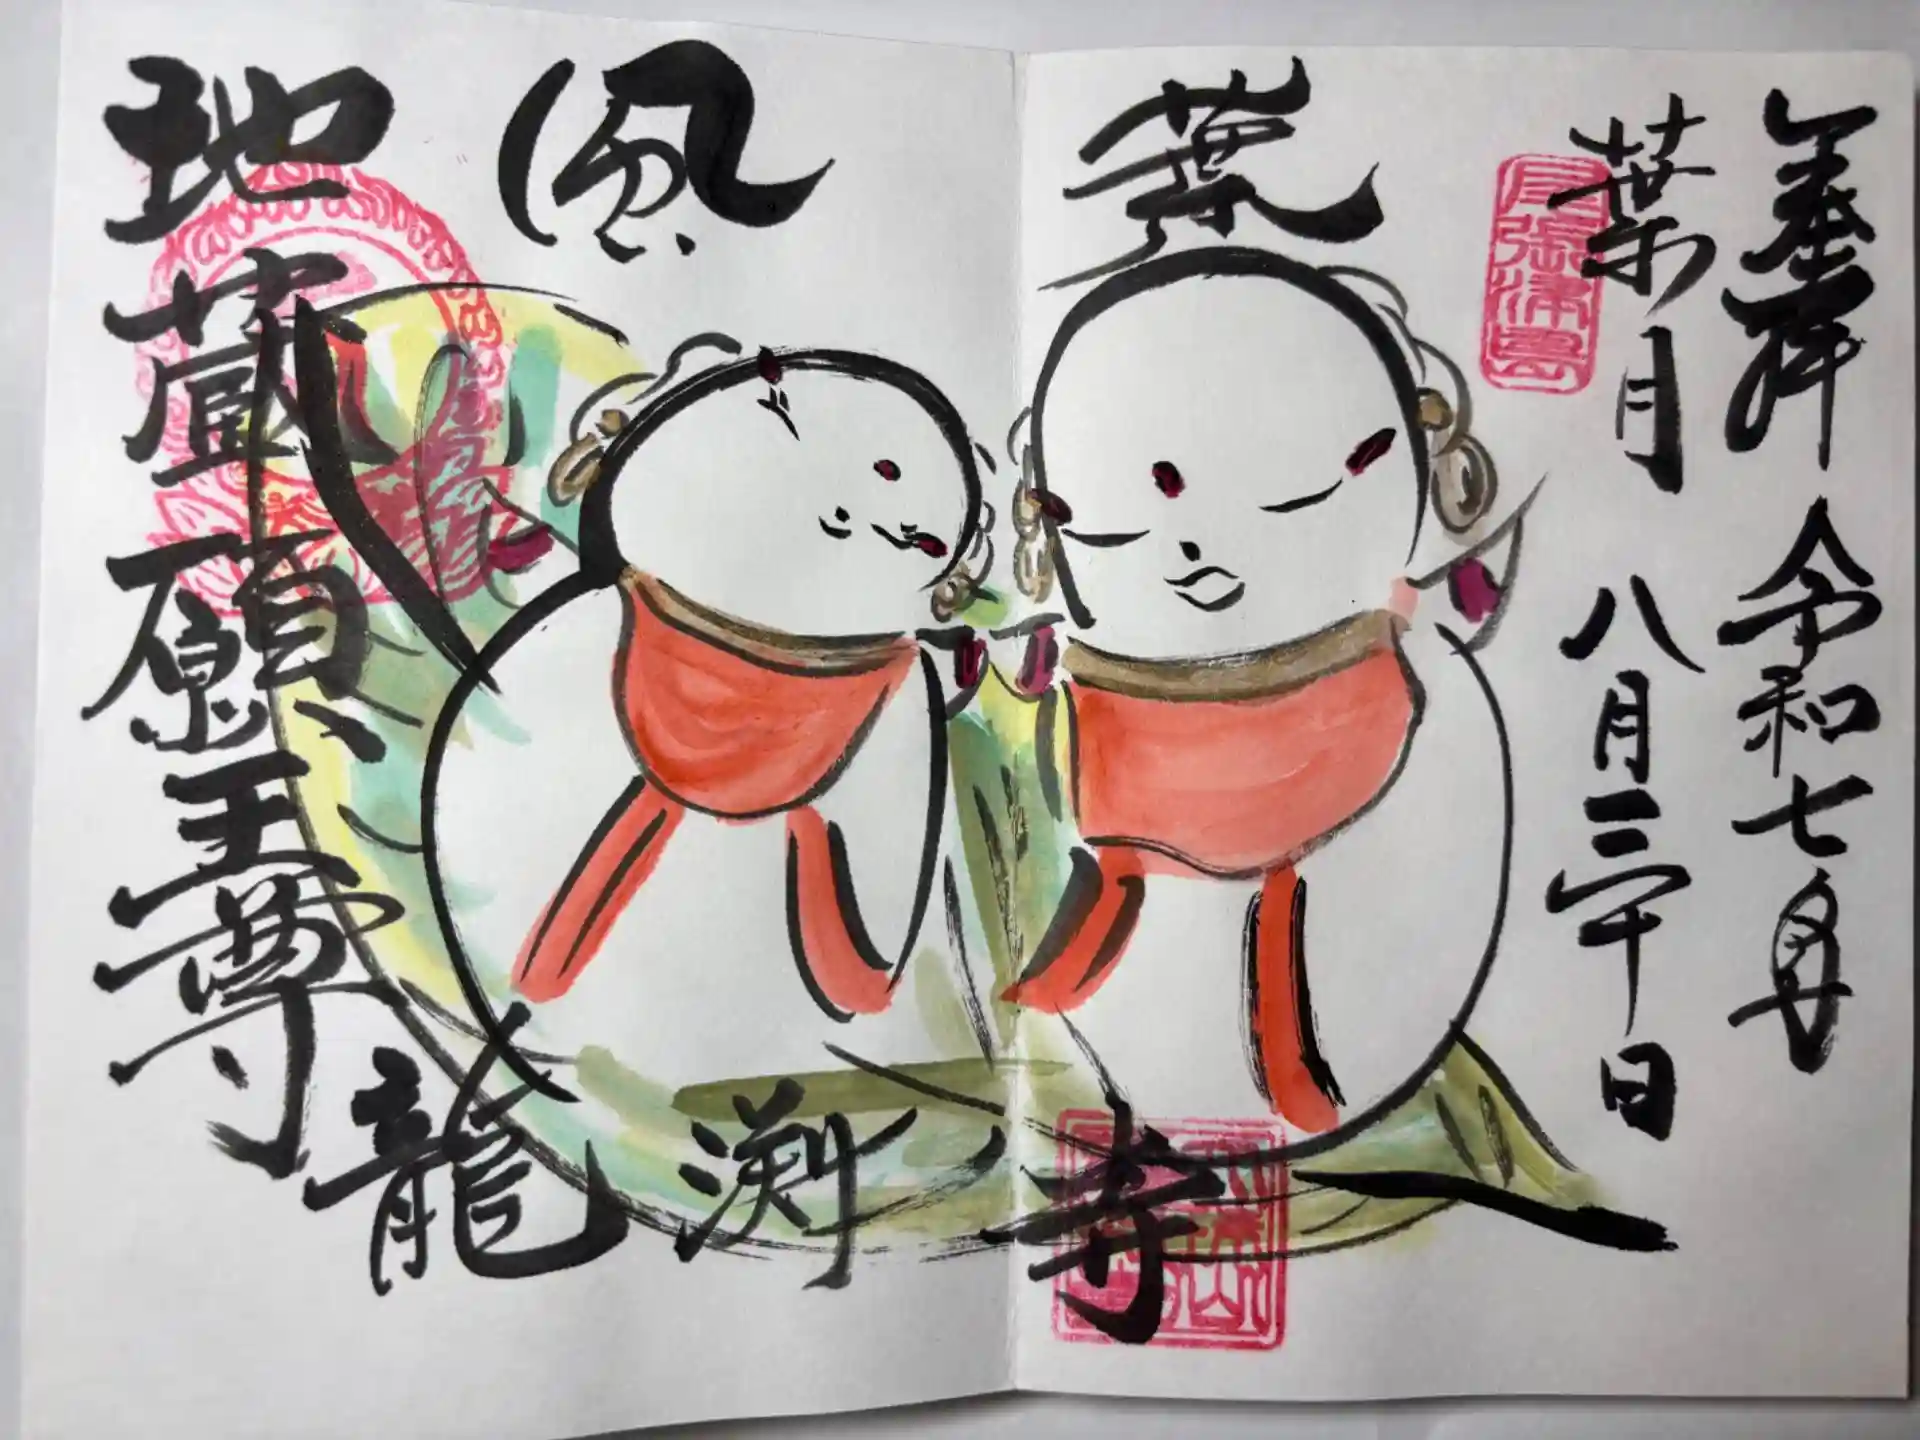 奉拝 令和七年
葉月 八月三十日
尾張清須
葉
風
地蔵願王尊
龍渕寺